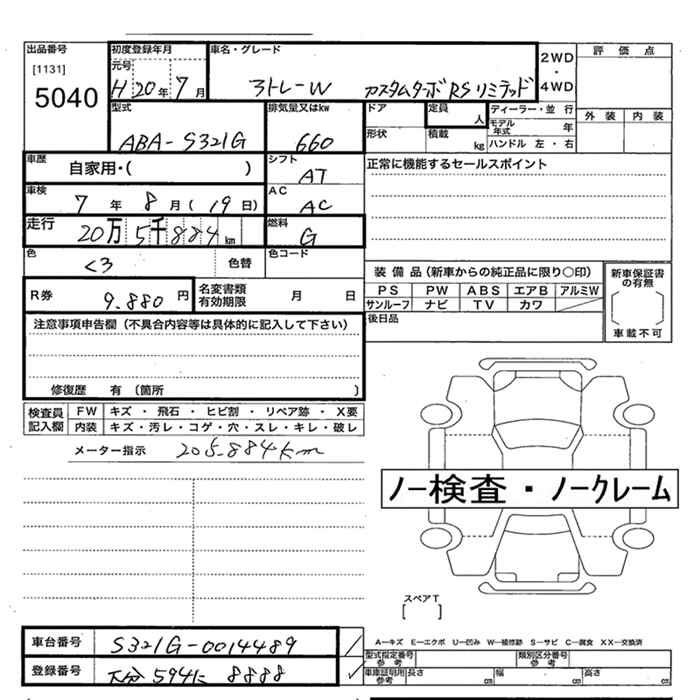 出品番号
[1131]
5040
初度登録年月
元号
H 20年 7月
車名・グレード
アトレーW カスタムターボRSリミテッド
2WD
・
4WD
評価点
外装 内装
型式
ABA-S321G
排気量又はkw
660
ドア
形状
定員
人
積載
kg
ディーラー・並行
モデル
年式 年
ハンドル 左・右
車歴
自家用・( )
シフト
AT
正常に機能するセールスポイント
車検
7年 8月(19日)
AC
AC
走行
20万5千884km
燃料
G
色
色替
色コード
R券
9.880円
名変書類
有効期限 月 日
装備品(新車からの純正品に限り○印)
PS PW ABS エアB アルミW
サンルーフ ナビ TV カワ
後日品
新車保証書
の有無
車載不可
注意事項申告欄(不具合内容等は具体的に記入して下さい)
修復歴 有 (箇所 )
検査員
記入欄
FW キズ・飛石・ヒビ割・リペア跡・X要
内装 キズ・汚レ・コゲ・穴・スレ・キレ・破レ
メーター指示 205.884km
ノー検査・ノークレーム
スペアT
[ ]
車台番号 S321G-0014489
登録番号 大分 594に 8888
A―キズ E―エクボ U―凹み W―補修跡 S―サビ C―腐食 XX―交換済
型式指定番号
参考
類別区分番号
参考
車庫証明用
参考
長さ cm 幅 cm 高さ cm